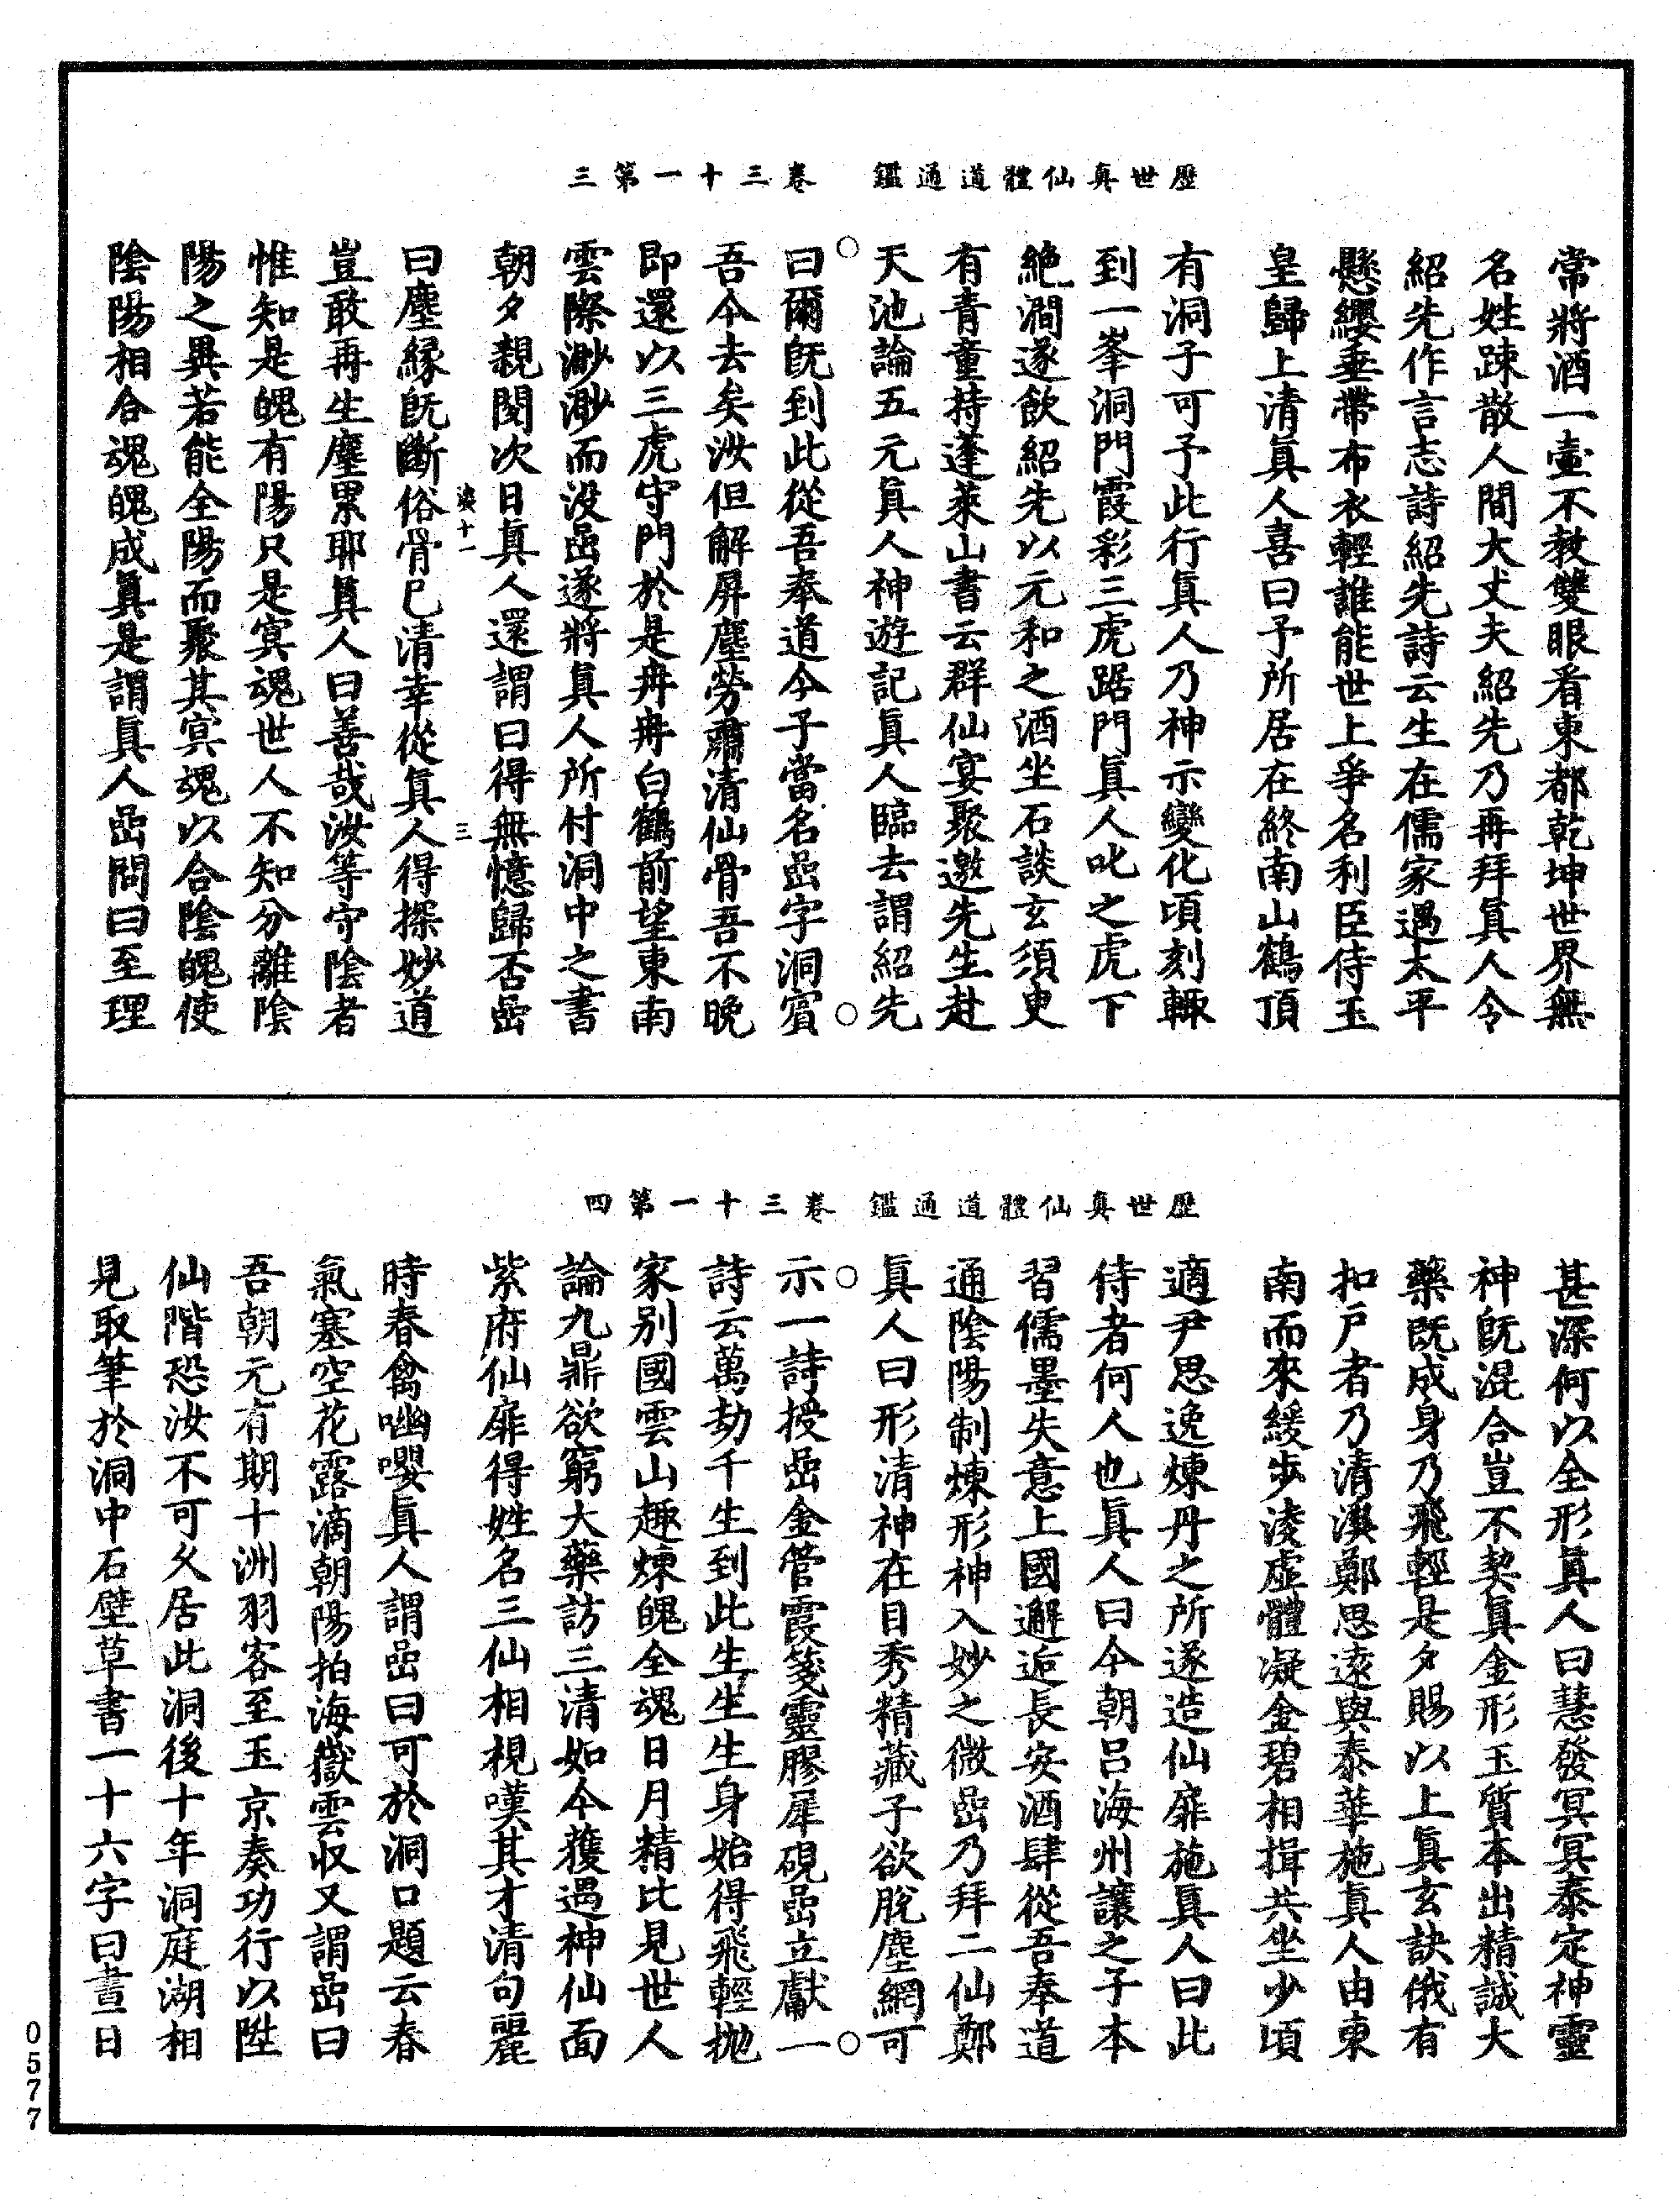 歷世真仙體道通鑑　卷三十一第三
常將酒一壷不教雙眼看東都乾坤世界無
名姓踈散人間大丈夫紹先乃再拜眞人令
紹先作言志詩紹先詩云生在儒家遇太平
懸纓垂帶布衣輕誰能世上爭名利臣侍玉
皇歸上清眞人喜曰予所居在終南山鶴頂
有洞子可予此行眞人乃神示變化頃刻輙
到一峯洞門霞彩三虎踞門眞人叱之虎下
絶澗遂飲紹先以元和之酒坐石談玄須臾
有青童持蓬萊山書云群仙宴聚邀先生赴
天池論五元眞人神遊記眞人臨去謂紹先
曰爾旣到此從吾奉道今子當名嵒字洞賓
吾今去矣汝但解屏塵勞肅清仙骨吾不晚
即還以三虎守門於是冉冉白鶴前望東南
雲際渺渺而没嵒遂將眞人所付洞中之書
朝夕親閱次日眞人還謂曰得無憶歸否嵒
曰塵縁旣斷俗骨巳清幸從眞人得探妙道
豈敢再生塵累耶眞人曰善哉汝等守陰者
惟知是魄有陽只是㝠魂世人不知分離陰
陽之異若能全陽而聚其㝠魂以合陰魄使
陰陽相合魂魄成眞是謂眞人嵒問曰至理
歷世真仙體道通鑑　卷三十一第四
甚深何以全形眞人曰慧發冥冥泰定神靈
神旣混合豈不契眞金形玉質本出精誠大
藥旣成身乃飛輕是夕賜以上眞玄訣俄有
扣戶者乃清溪鄭思遠與泰華施真人由東
南而來緩步淩虛體凝金碧相揖共坐少頃
適尹思逸煉丹之所遂造仙扉施眞人曰此
侍者何人也眞人曰今朝呂海州讓之子本
習儒墨失意上國邂逅長安酒肆從吾奉道
通陰陽制煉形神入妙之微嵒乃拜二仙鄭
眞人曰形清神在目秀精藏子欲脫塵網可
示一詩授嵒金管霞箋靈膠犀硯嵒立獻一
詩云萬劫千生到此生生生身始得飛輕拋
家別國雲山趣煉魄全魂日月精比見世人
論九鼎欲窮大藥訪三清如今獲遇神仙面
紫府仙扉得姓名三仙相視嘆其才清句麗
時春禽呦嚶眞人謂嵒曰可於洞口題云春
氣塞空花露滴朝陽拍海嶽雲収又謂嵒曰
吾朝元有期十洲羽客至玉京奏功行以陞
仙階恐汝不可久居此洞後十年洞庭湖相
見取筆於洞中石壁草書一十六字曰晝日
0577